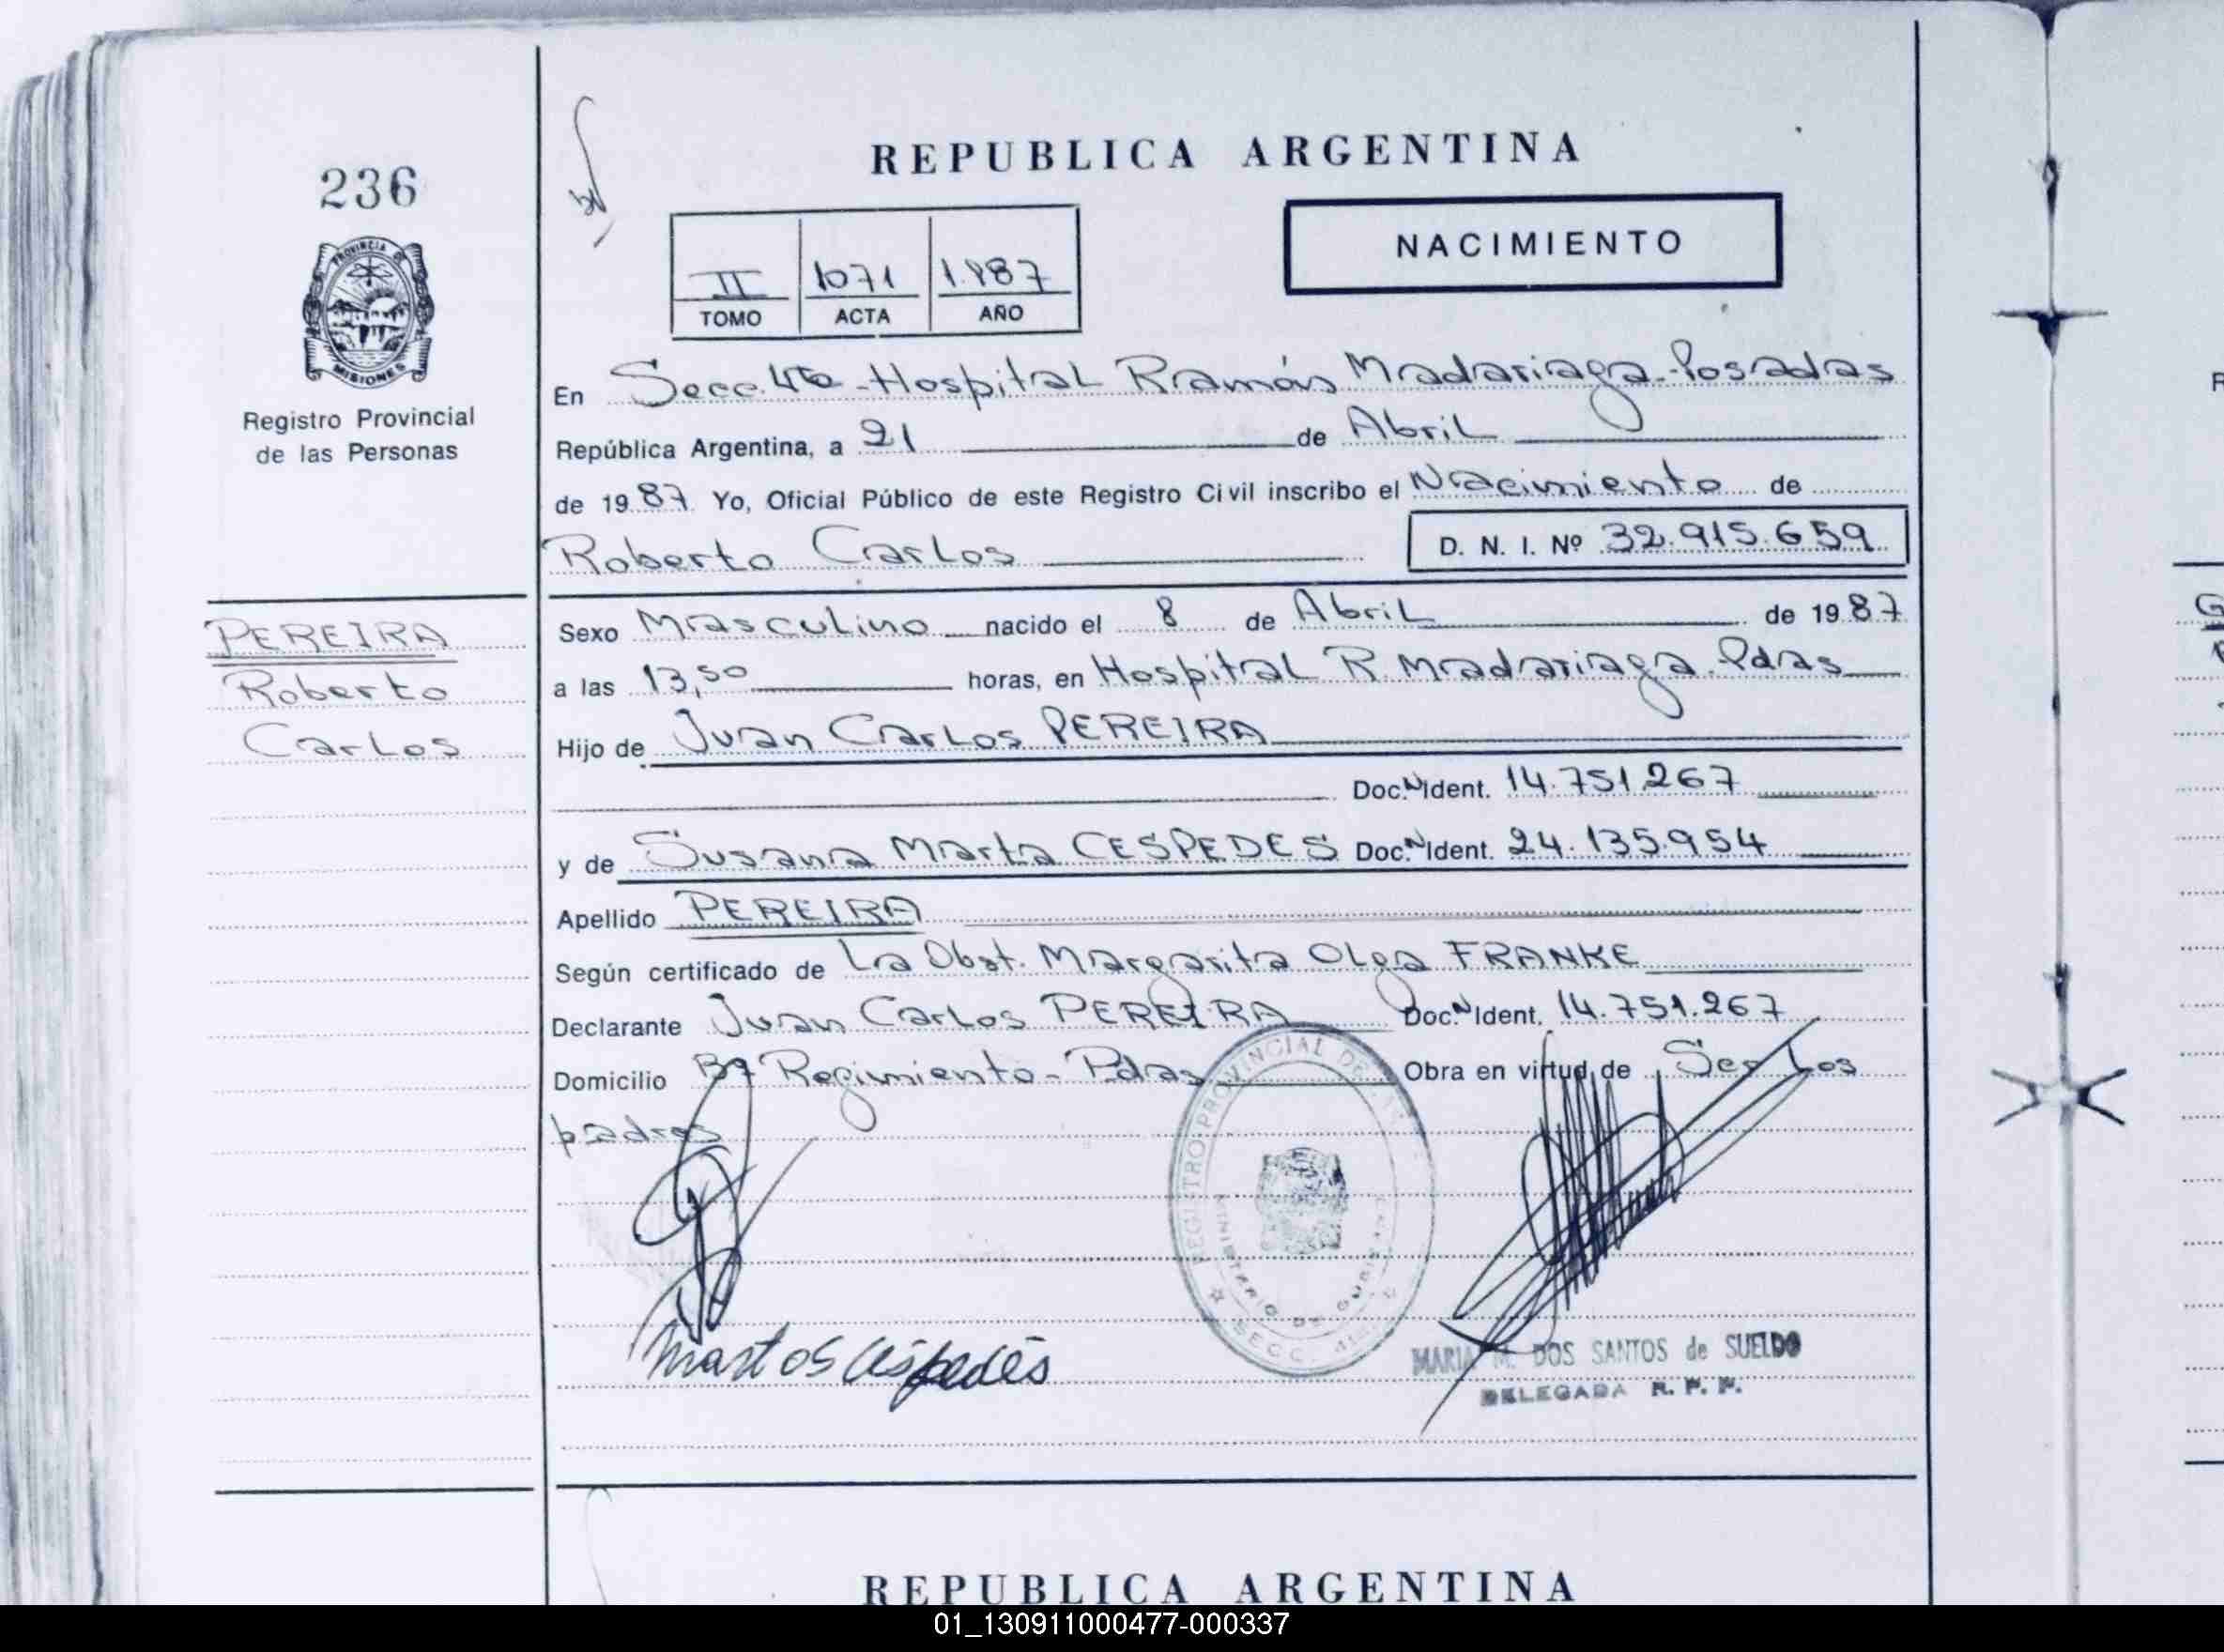 236
PROVINCIA DE
MISIONES
Registro Provincial
de las Personas
PEREIRA
Roberto
Carlos
REPUBLICA ARGENTINA
NACIMIENTO
II 1071 1.987
TOMO ACTA AÑO
En Secc. 4ta - Hospital Ramón Madariaga - Posadas
República Argentina, a 21 de Abril
de 1987 Yo, Oficial Público de este Registro Civil inscribo el Nacimiento de
Roberto Carlos D. N. I. Nº 32.915.659
Sexo Masculino nacido el 8 de Abril de 1987
a las 13,50 horas, en Hospital R. Madariaga - Pdas
Hijo de Juan Carlos PEREIRA
Doc. N Ident. 14.751.267
y de Susana Marta CESPEDES Doc. N Ident. 24.135.954
Apellido PEREIRA
Según certificado de La Obst. Margarita Olga FRANKE
Declarante Juan Carlos PEREIRA Doc. N Ident. 14.751.267
Domicilio Bº Regimiento - Pdas Obra en virtud de Ser Los
padres
REGISTRO PROVINCIAL DE
MINISTERIO DE GOBIERNO
SECC. 4ta
MARIA M. DOS SANTOS de SUELDO
DELEGADA R. P. P.
REPUBLICA ARGENTINA
01_130911000477-000337